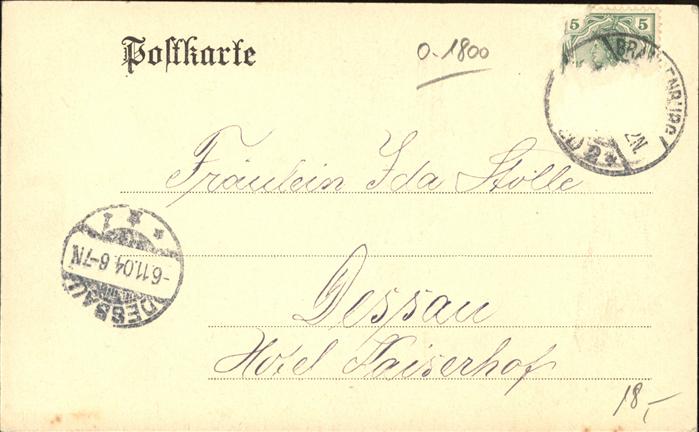 Postkarte
0.1800
5 5
BRANDENBURG
2N.
Fräulein Ida Stolle
DESSAU
-6.11.04.6-7N
1
Dessau
Hotel Kaiserhof
18,-